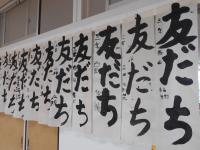 友だち
友だち
友だち
友だち
友だち
友だち
友だち
友だち
友だち